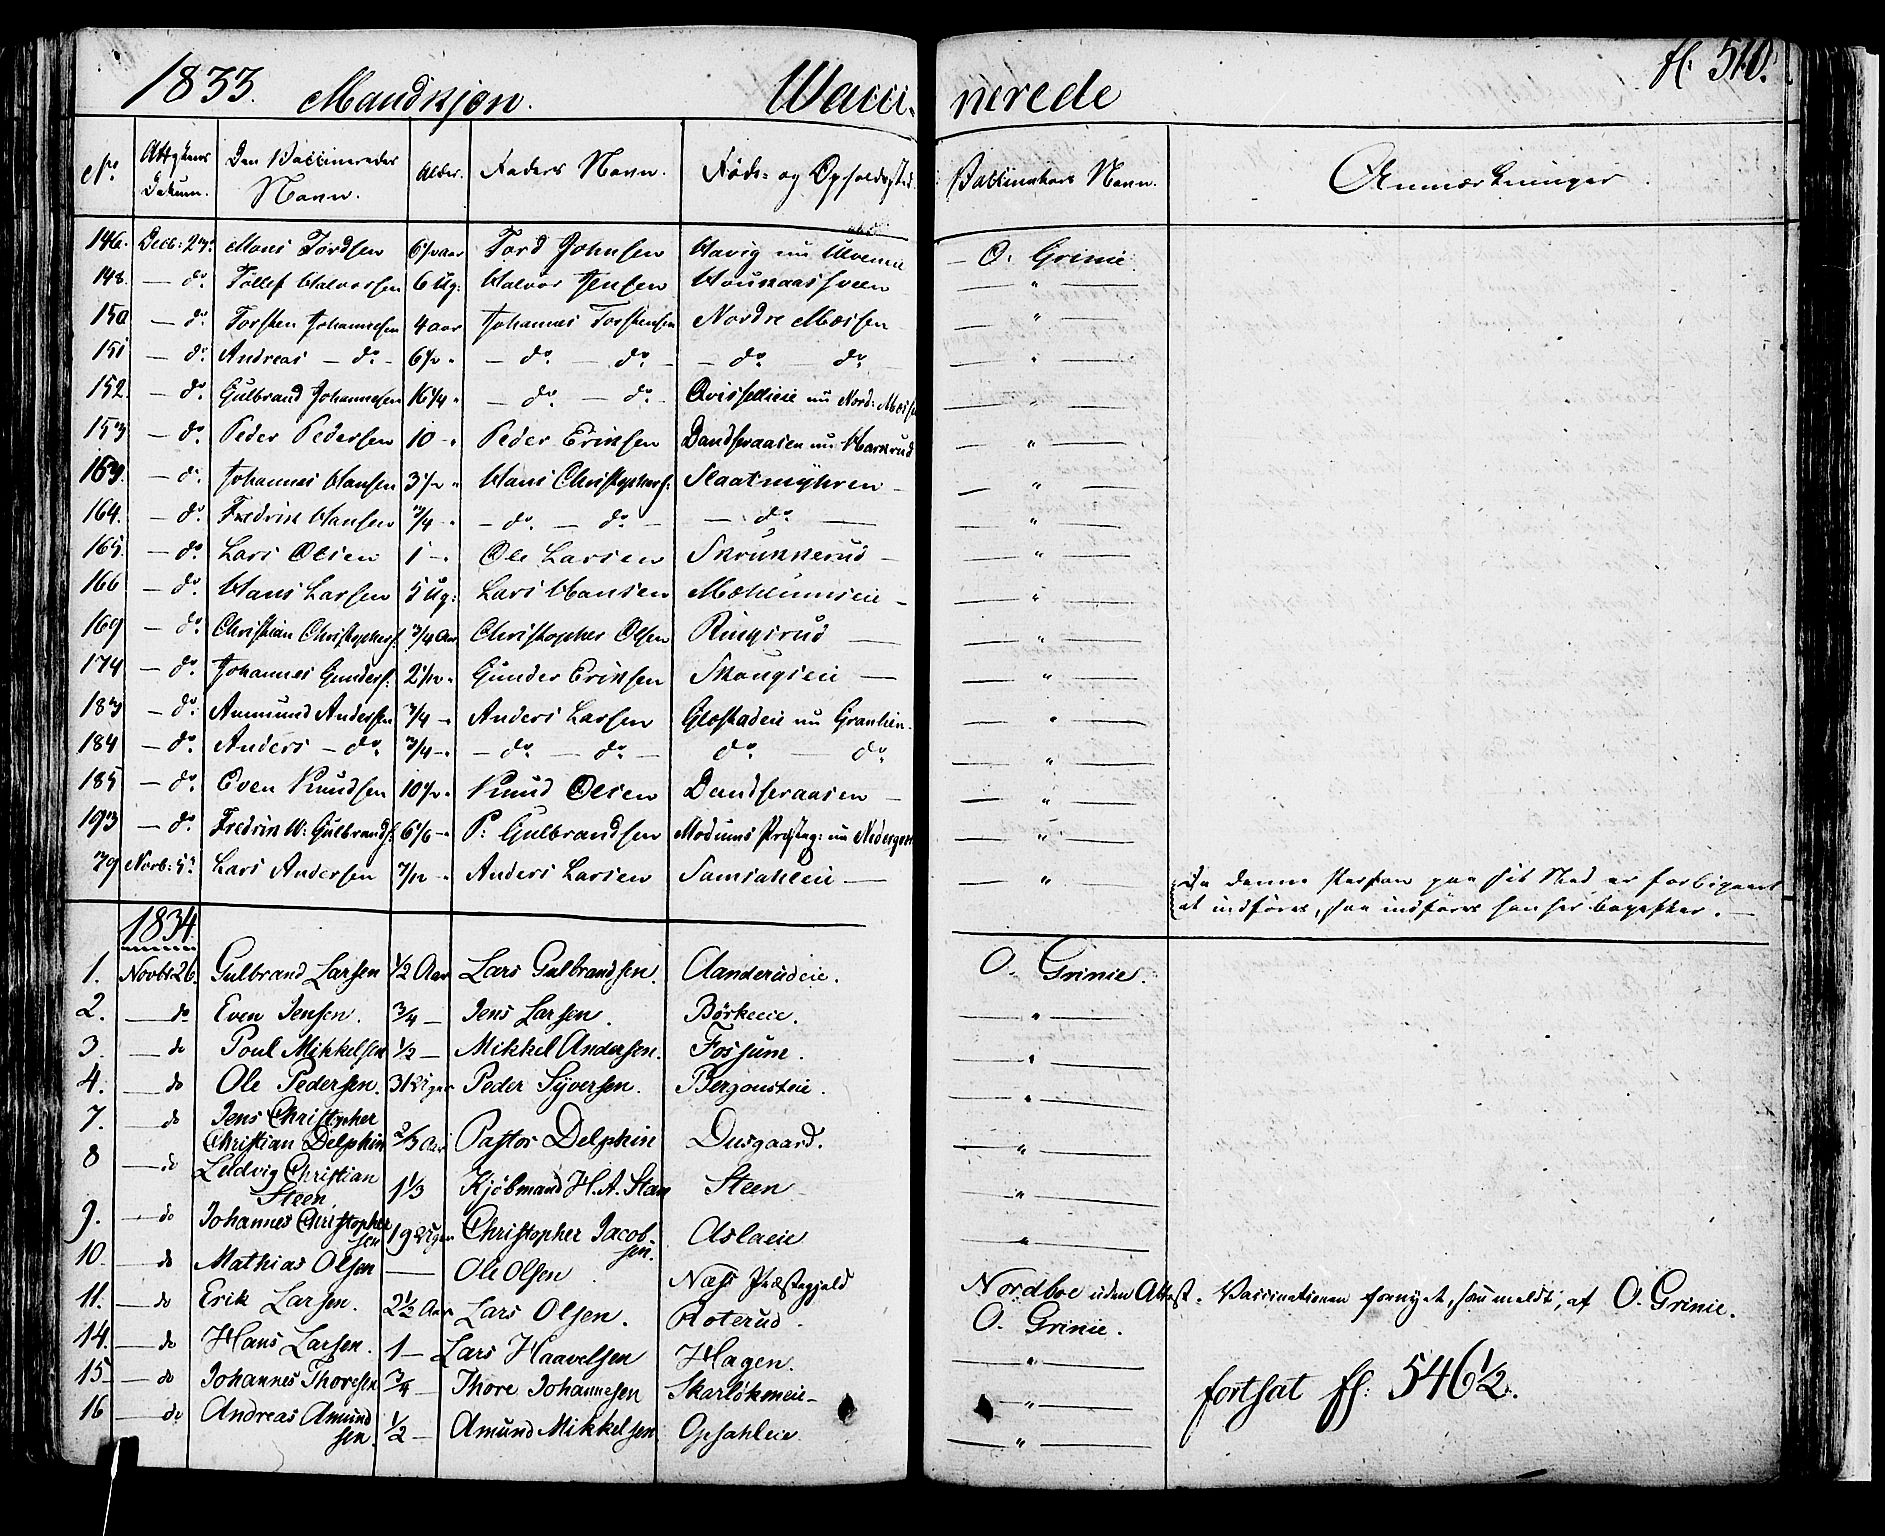 1833. Mandkjøn. Vacci- nerede fl. 510.
No. Attestens Datum. Den Vaccineredes Navn. Alder. Faders Navn. Føde- og Opholdssted. Vaccinateurs Navn. Anmærkninger.
146. Decb: 23. Mons Tordsen 6 1/2 aar Tord Johnsen Havig nu Ulverne O. Grinie
148. — do. Tollef Halvorsen 6 Ug: Halvor Jensen — " —
150 — do. Torsten Johannesen 4 aar Johannes Torstensen Nordre Mæssen — " —
151 — do. Andreas — do. 6 1/2 " — do. — do. — do. do. — " —
152. — do. Gulbrand Johannesen 16 1/4 " — do. — do. nu Nord: Mæssen — " —
153 — do. Peder Pedersen 10 — " Peder Eriksen nu — " —
163. — do. Johannes Hansen 3 1/2 " Hans Christophers: Slaatmyhren — " —
164. — do. Fredrik Hansen 3/4 " — do. — do. — — do. — — " —
165. — do. Lars Olsen 1 — " Ole Larsen Skrukkerud — " —
166 — do. Hans Larsen 5 Ug: Lars Hansen Mæhlumseie — " —
169 — do. Christian Christophers: 3/4 Aar Christopher Olsen Ringsrud — " —
174 — do. Johannes Gunders: 2 1/12 " Gunder Eriksen Skougseie — " —
183 — do. Anmund Andersen 3/4 — " Anders Larsen nu — " —
184 — do. Anders — do. 3/4 — " — do. — do. — do. — do. — " —
185 — do. Even Knudsen 10 1/2 " Knud Olsen — " —
193 — do. Fredrik W: Gulbrands: 6 1/6 — " P: Gulbrandsen Modums Præsteg: nu — " —
39 Novb: 5. Lars Andersen 7/12 — " Anders Larsen — " — Da denne Person paa sit Sted er forbigaaet
at indføres, saa indføres han her bagefter. —
1834.
1. Novbr 26. Gulbrand Larsen 1/2 Aar Lars Gulbrandsen. Aanderudeie. O. Grinie.
2. — do Even Jensen. 3/4 — Jens Larsen. Børkeeie. — " —
3. — do Poul Mikkelsen 1/2 — Mikkel Andersen. Fossum. — " —
4. — do Ole Pedersen. 31 Uger Peder Syversen. — " —
7. — do Jens Christopher
Christian Delphin 2/3 Aar Pastor Delphin Dusgaard. — " —
8 — do Ludvig Christian
Steen 1 1/3 Kjøbmand H. A. Steen Steen — " —
9. — do Johannes Christopher
sen 19 Uger Christopher Jacob-
sen. Aslaeie — " —
10. — do Mathias Olsen — Ole Olsen. Næss Præstegjeld Nordboe uden Attest. Vaccinationen fornyet, som meldt, af O. Grinie.
11. — do Erik Larsen. 2 1/2 Aar Lars Olsen. Roterud. O. Grinie.
14. — do Hans Larsen. 1 — Lars Haavelsen Hagen. — " —
15 — do Johannes Thoresen 3/4 — Thore Johannesen — " —
16 — do Andreas Amund
sen. 1/2 — Amund Mikkelsen Opsahleie — " —
fortsat fl: 546 1/2.